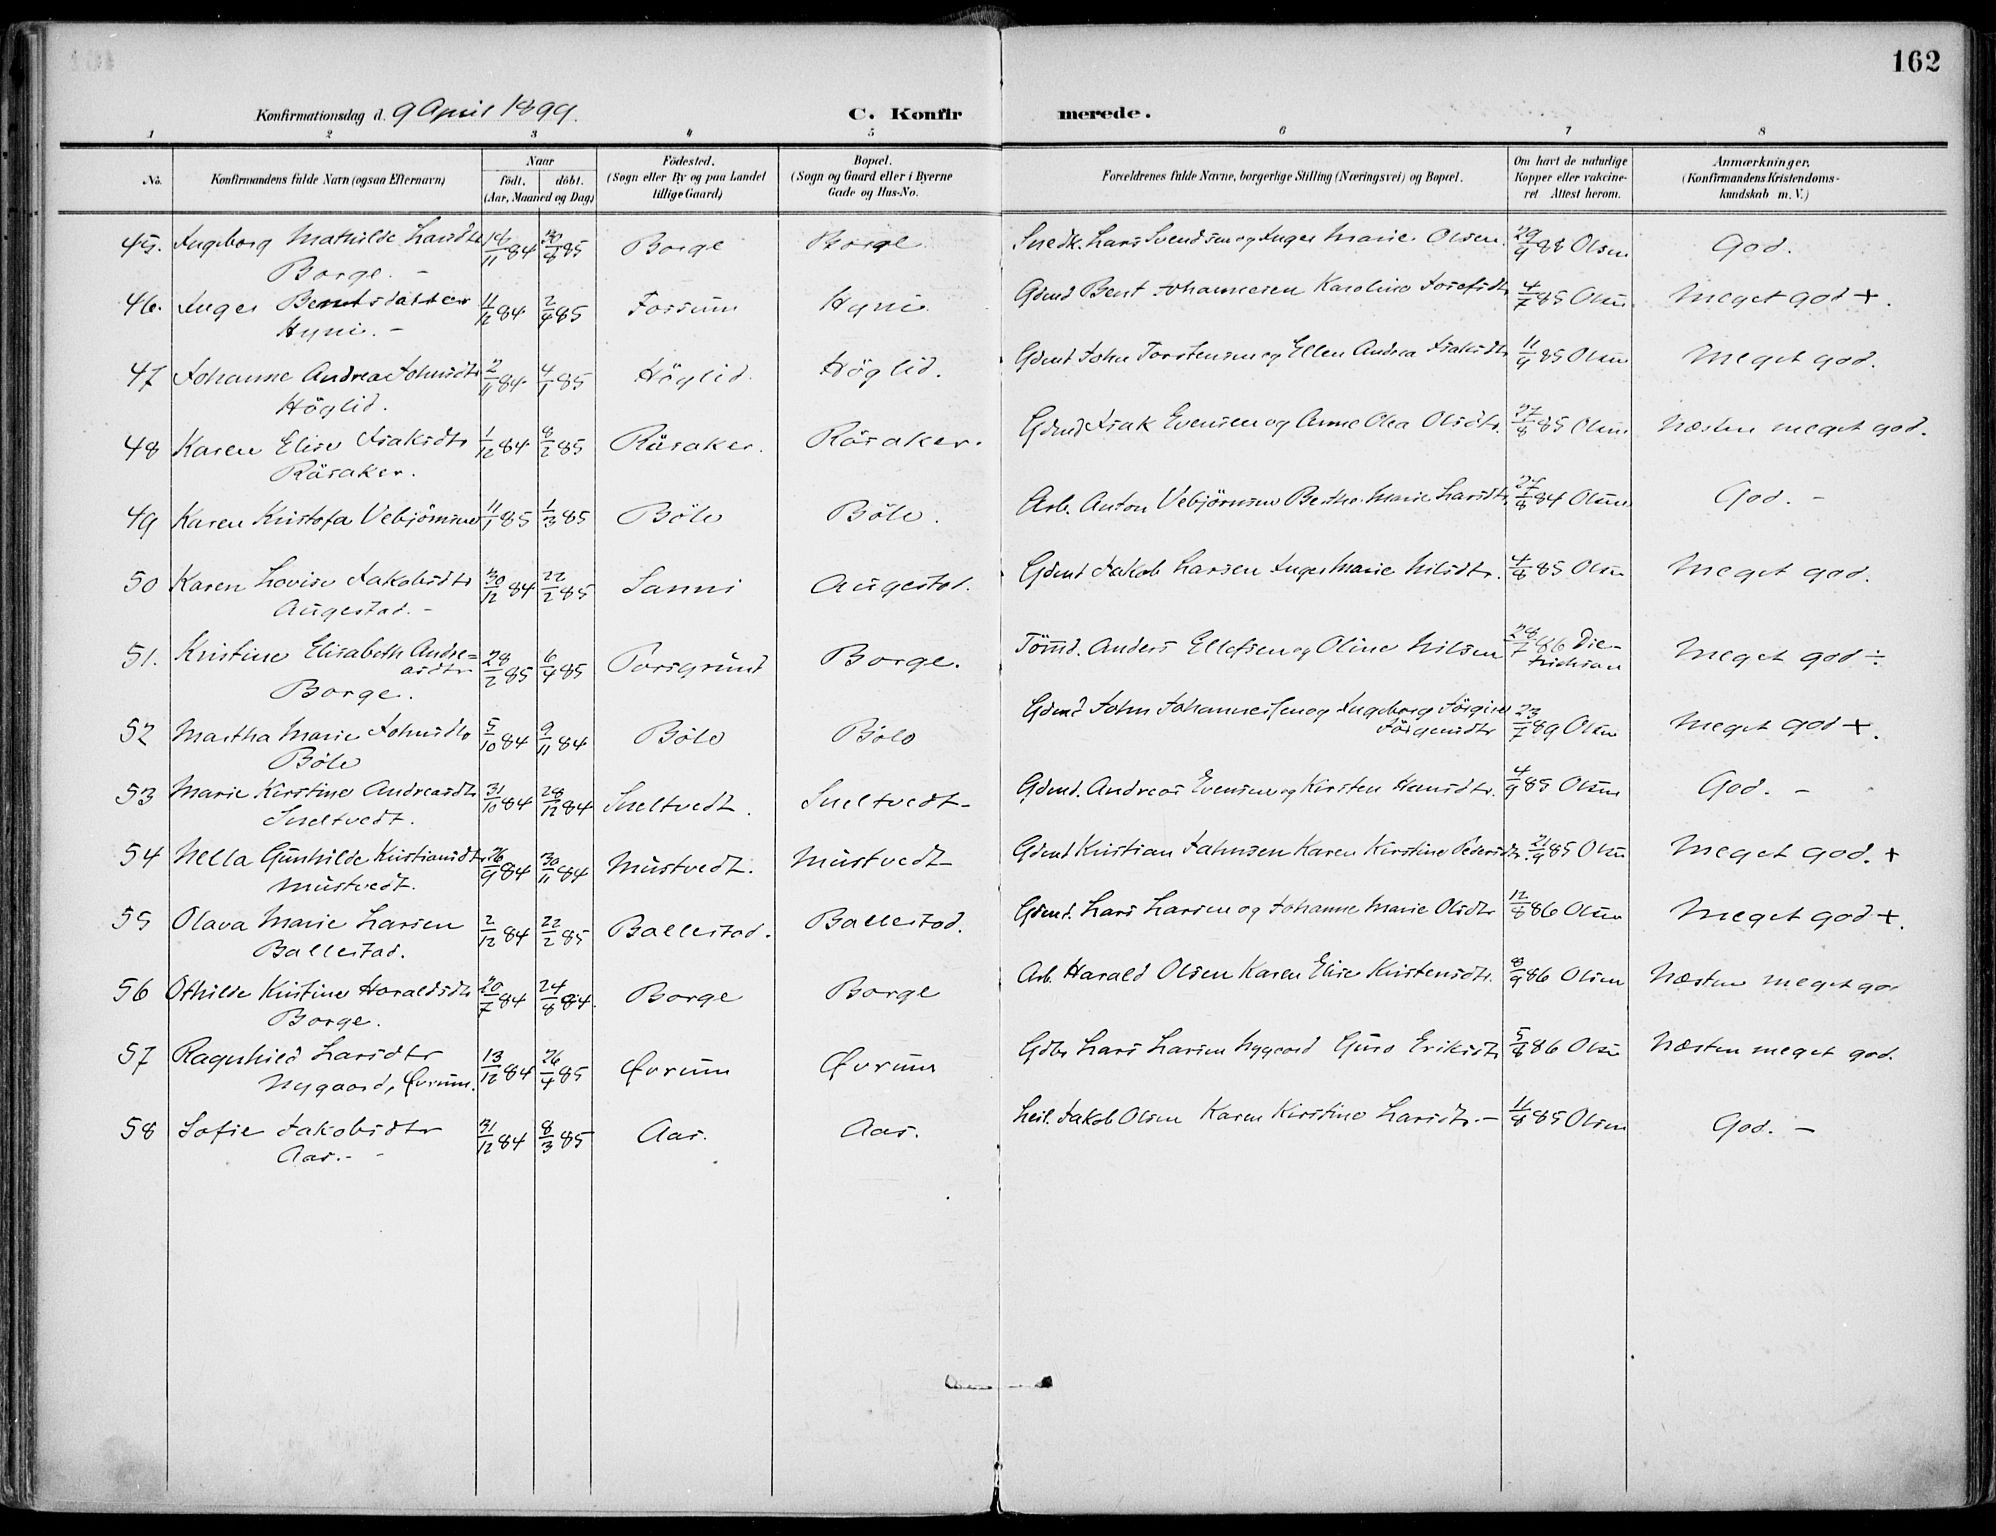 162
Konfirmationsdag d. 9 April 1899.
C. Konfir merede.
1 2 3 4 5 6 7 8
No. Konfirmandens fulde Navn (ogsaa Efternavn) Naar födt. döbt. (Aar, Maaned og Dag) Födested. (Sogn eller By og paa Landet tillige Gaard) Bopæl. (Sogn og Gaard eller i Byerne Gade og Hus-No. Forældrenes fulde Navne, borgerlige Stilling (Næringsvei) og Bopæl. Om havt de naturlige Kopper eller vakcineret Attest herom. Anmærkninger. (Konfirmandens Kristendomskundskab m. V.)
45. Ingeborg Mathilde Larsdtr 16/11 84 30/8 85 Borge Borge Snedk. Lars Svendsen og Inger Marie Olsen. 29/9 88 Olsen God.
Borge. –
46. Inger Bentsdatter 11/12 84 2/4 85 Fossum Hyni Gdmd Bent Johannesen Karoline Josefsdtr 4/7 85 Olsen Meget god +.
Hyni. –
47 Johanne Andrea Johnsdtr 2/11 84 4/1 85 Höglid. Höglid. Gdmd John Torstensen og Ellen Andrea Isaksdtr 11/9 85 Olsen Meget god.
Höglid.
48 Karen Elise Isaksdtr 1/12 84 8/2 85 Räsaker. Räsaker. Gdmd Isak Evensen og Anne Olea Olsdtr. 27/8 85 Olsen Næsten meget god.
Räsaker.
49 Karen Kristofa Vebjörnsen 11/1 85 1/3 85 Böle Böle. Arb. Anton Vebjörnsen Berthe Marie Larsdtr. 27/8 84 Olsen God. –
50 Karen Lovise Jakobsdtr 30/12 84 22/2 85 Sanni Augestad. Gdmd Jakob Larsen Inger Marie Nilsdtr. 4/8 85 Olsen Meget god.
Augestad. –
51. Kristine Elisabeth Andre= 28/2 85 6/4 85 Porsgrund Borge. Tömd. Anders Ellefsen og Oline Nilsen 28/7 86 Die- Meget god ÷
asdtr
Borge.
52 Martha Marie Johnsdtr 5/10 84 9/11 84 Böle Böle Gdmd John Johannessen og Ingeborg 23/7 89 Olsen Meget god +.
Jörgensdtr
Böle
53 Marie Kirstine Andreasdtr 31/10 84 28/12 84 Sneltvedt. Sneltvedt – Gdmd. Andreas Evensen og Kirsten Hansdtr. 4/9 85 Olsen God. –
Sneltvedt.
54 Nella Gunhilde Kristiansdtr 26/9 84 30/11 84 Mustvedt. Mustvedt Gdmd Kristian Jahnsen Karen Kirstine Pedersdtr. 21/9 85 Olsen Meget god. +
Mustvedt.
55 Olava Marie Larsen 2/12 84 22/2 85 Ballestad. Ballestad. Gdmd. Lars Larsen og Johanne Marie Olsdtr 12/8 86 Olsen Meget god +.
Ballestad.
56 Othilde Kristine Haraldsdtr 20/7 84 24/8 84. Borge Borge Arb. Harald Olsen Karen Elise Kristensdtr. 8/9 86 Olsen Næsten meget go
Borge.
57 Ragnhild Larsdtr 13/12 84 26/4 85 Øvrum Øvrum Gdbr Lars Larsen Nygaard Guro Eriksdtr 5/8 86 Olsen Næsten meget god.
Nygaard, Øvrum.
58 Sofie Jakobsdtr 31/12 84 8/3 85 Aas. Aas. Leil. Jakob Olsen Karen Kirstine Larsdtr. – 11/8 85 Olsen God. –
Aas. –